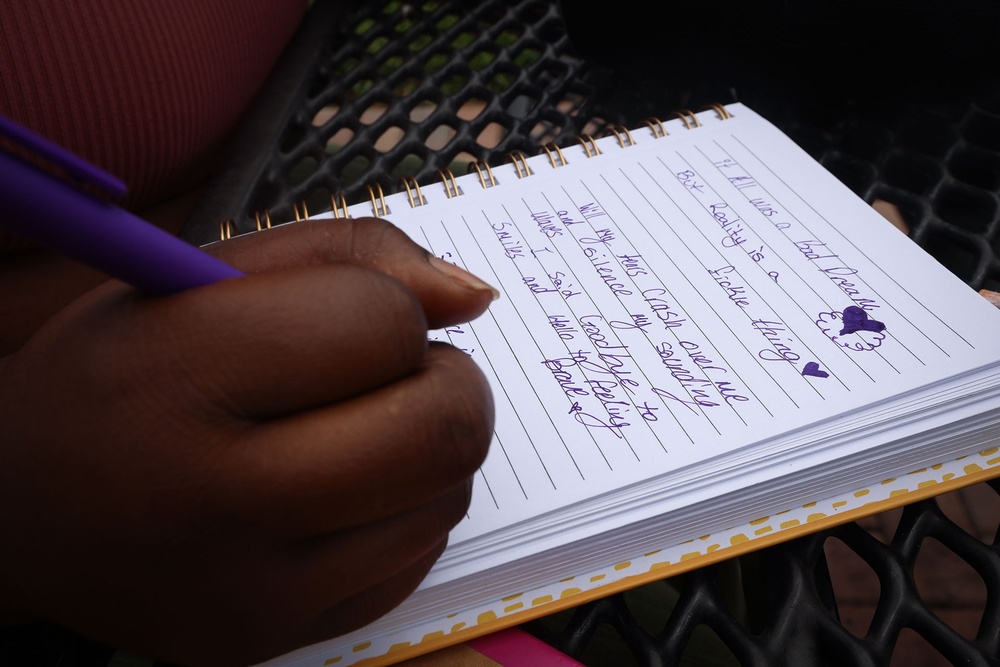 If All was a bad Dream
But Reality is a
fickle thing
Will my tears crash over me
and silence my sounding
Waves I said Goodbye to
Smiles and Hello to feeling
Brave